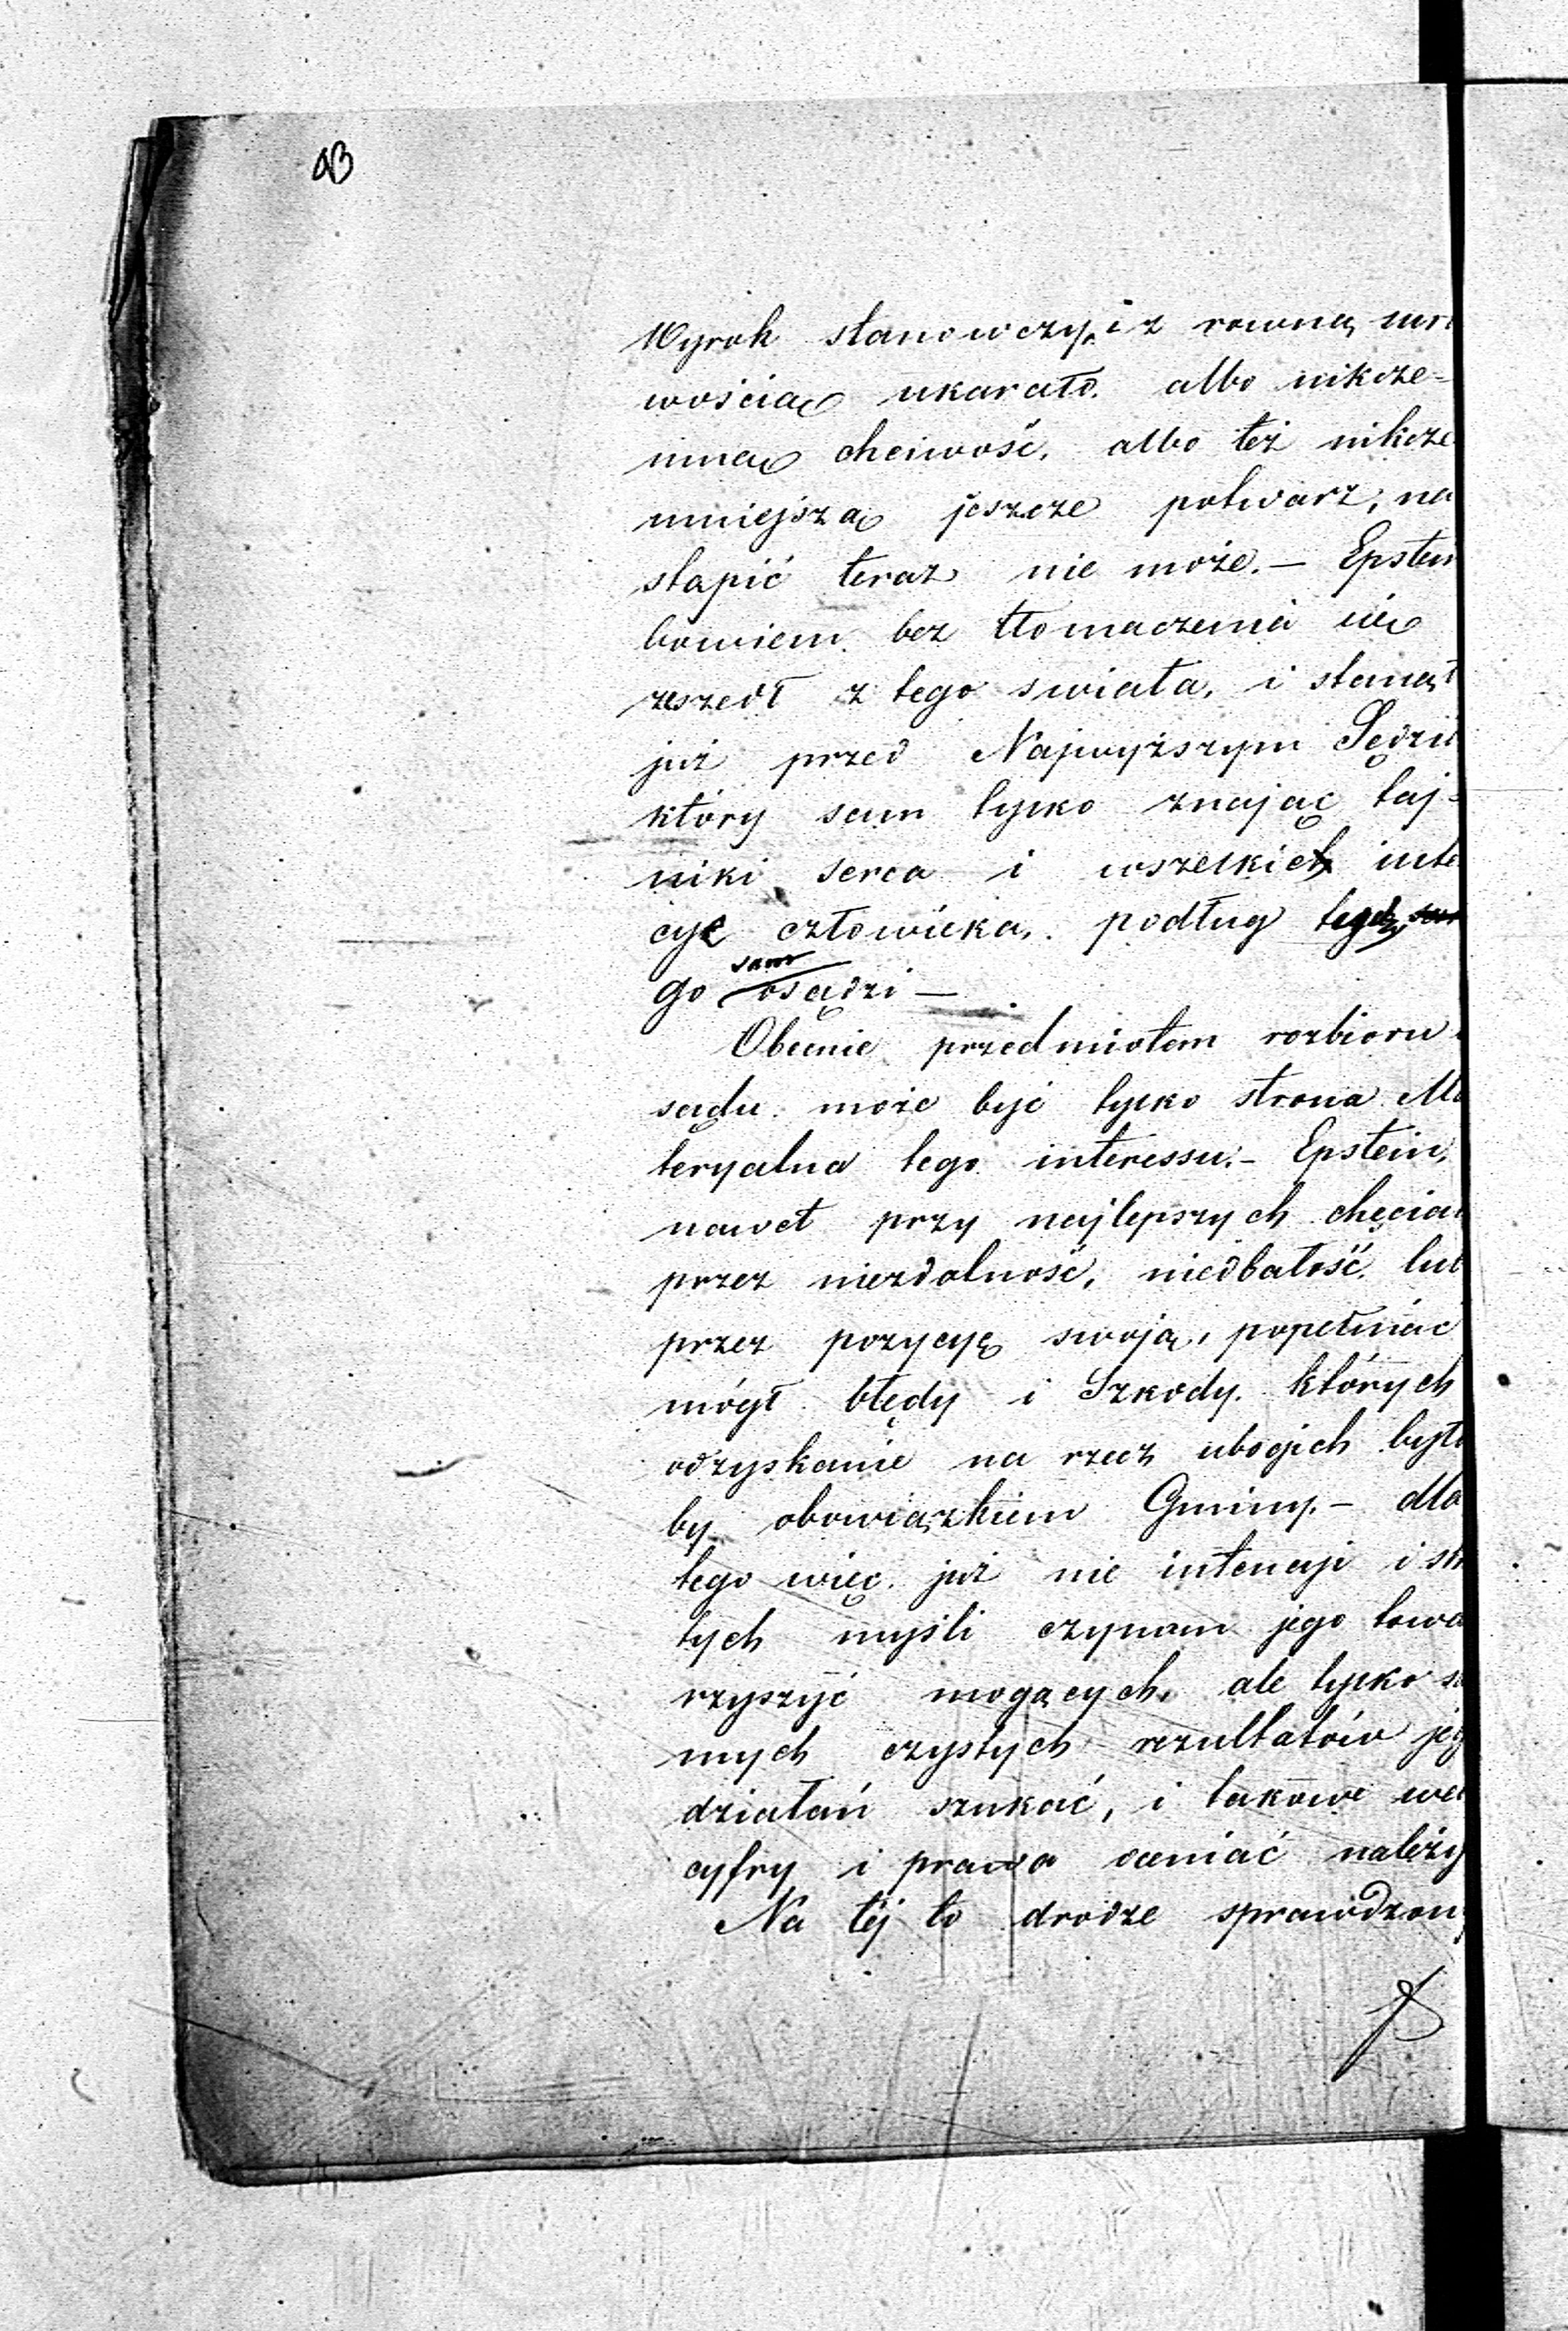 Wyrok stanowczy, i z rowną suro
wościąę ukarało. albo nikcze=
mną chciwość, albo też nikcze
mniejszą jeszcze potwarz, na
stąpić teraz nie może. — Epstein
bowiem bez tłomaczenia się
zeszedł z tego swiata, i stanął
już przed Najwyższym Sędzią
który sam tylko znając taj=
niki serca i wszelkich inte
cye człowieka, podług
go sam osądzi —
Obecnie przedmiotem rozbioru
sądu może być tylko strona Ma
teryalna tego interessu. — Epstein,
nawet przy najlepszych chęciach
przez niezdolność, niedbałość lub
przez pozycyę swoją, popełniać
mógł błędy i Szkody, których
odzyskanie na rzecz ubogich było
by obowiązkiem Gminy. — dla
tego więc już nie intencji i skry
tych myśli czynom jego towa
rzyszyć mogących, ale tylko sa
mych czystych rezultatów jego
działań szukać, i takowe we
cyfry i prawa oceniać należy
Na tej to drodze sprawdzony